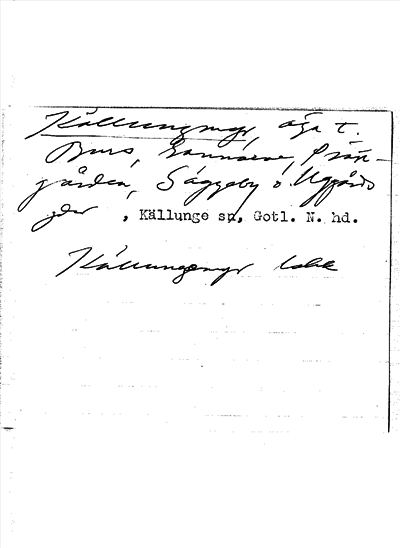 Källungemyr, äga t.
Burs, Gannarve, Präst-
gården, Säggeby o. Uggårds
gdar, Källunge sn, Gotl. N. hd.
Källungemyr